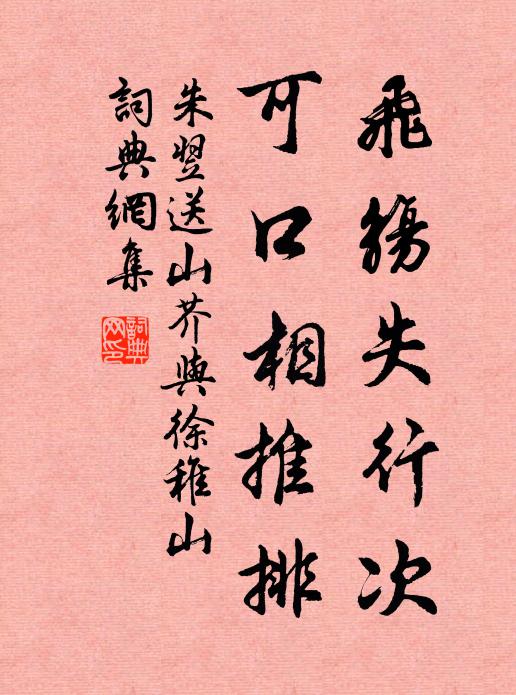 飛觴失行次
可口相推排
朱翌送山芥與徐稚山
詞典網集
詞典網印